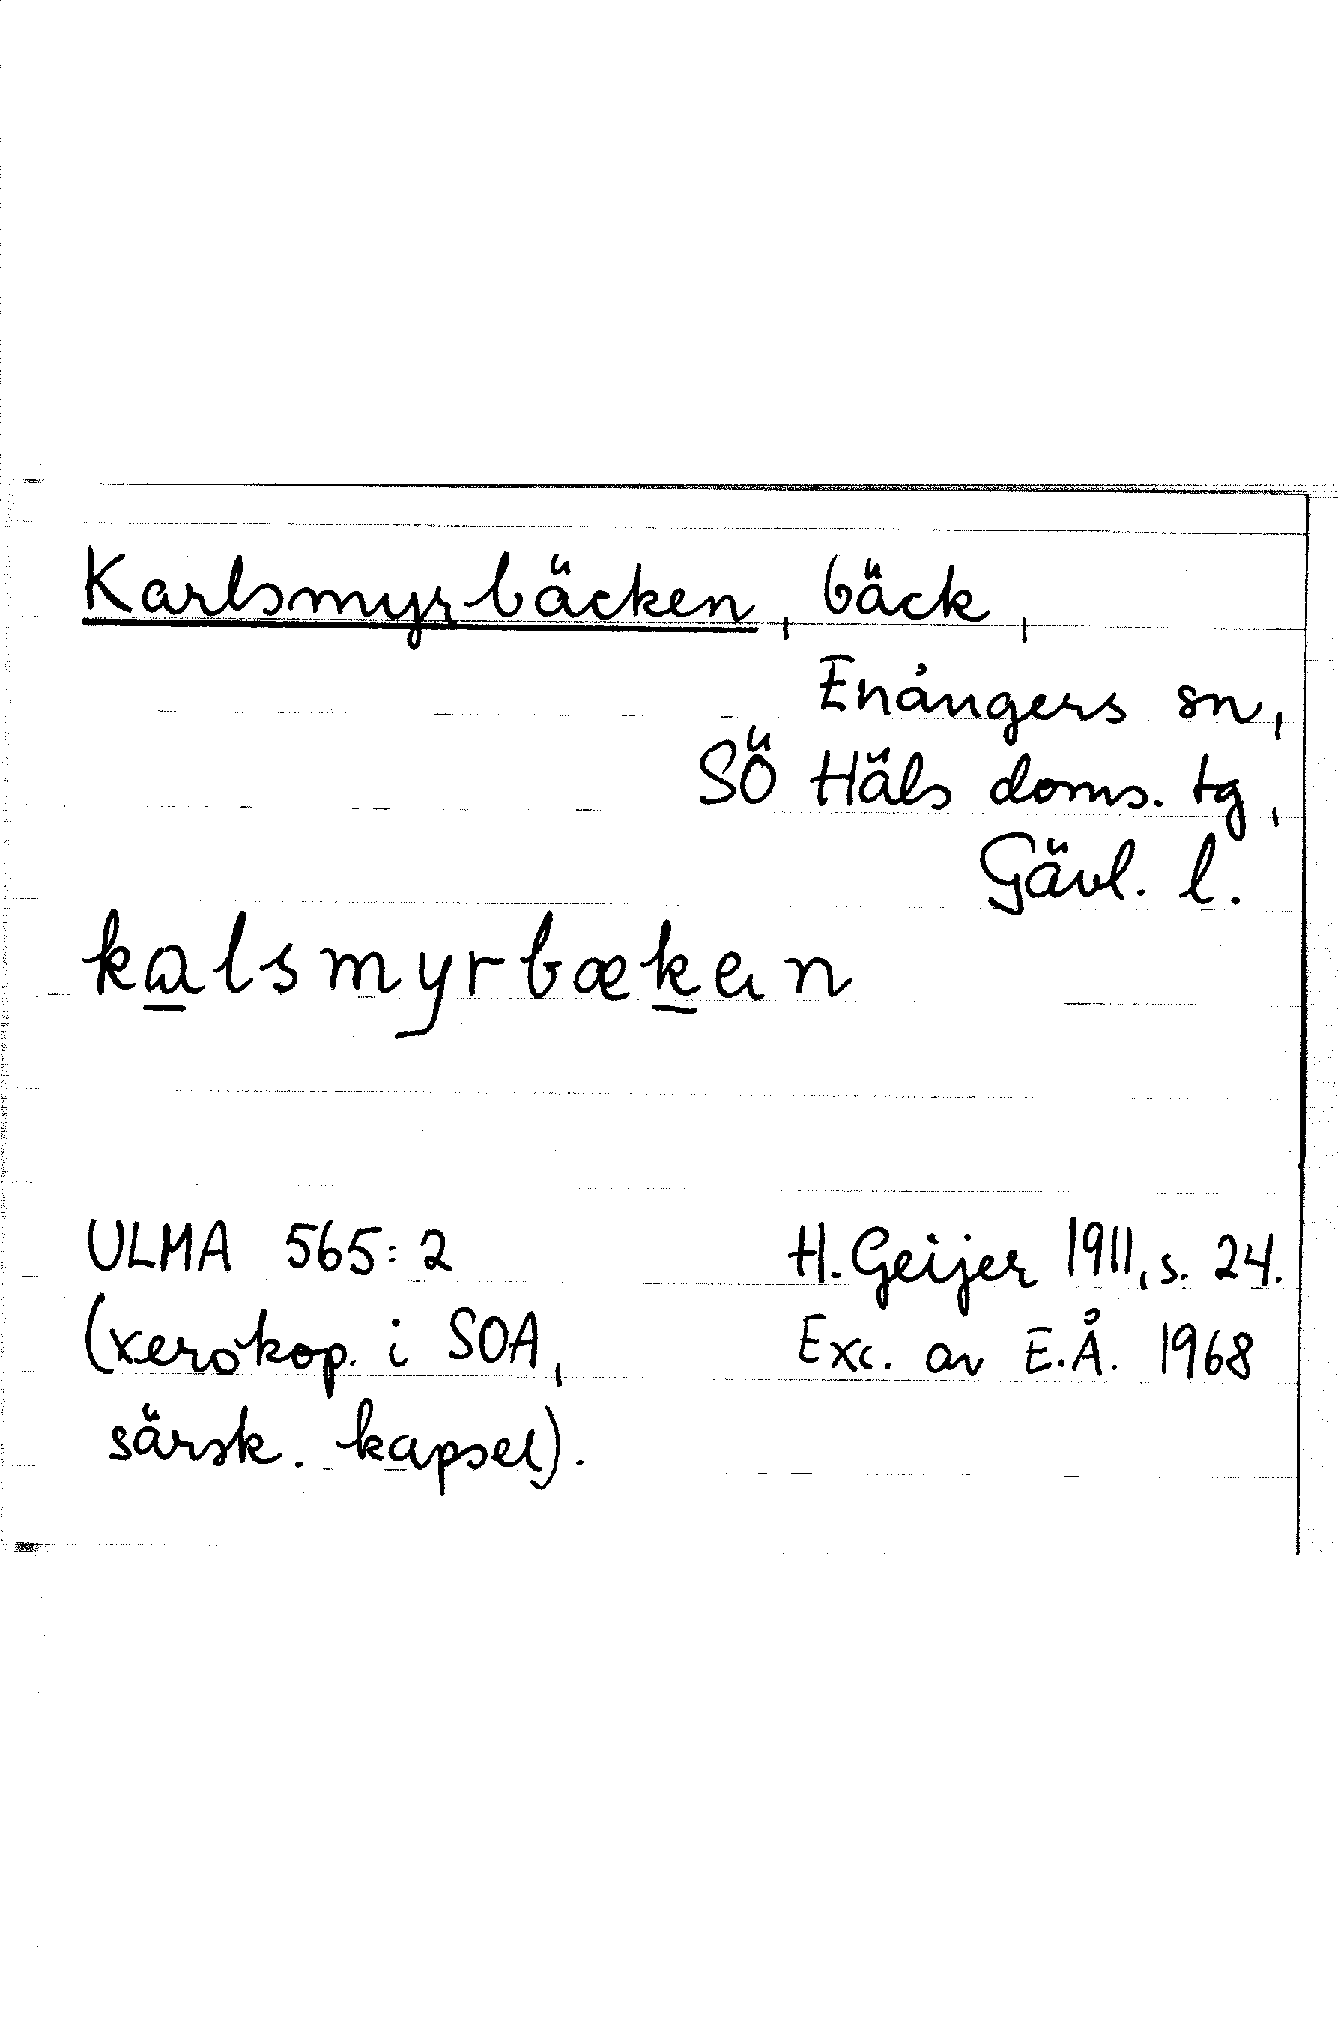 Karlsmyrbäcken, bäck,
Enångers sn,
SÖ Häls doms. tg,
Gävl. l.
kalsmyrbækən
ULMA 565:2 H. Geijer 1911, s. 24.
(xerokop. i SOA, Exc. av E.Å. 1968
särsk. kapsel).